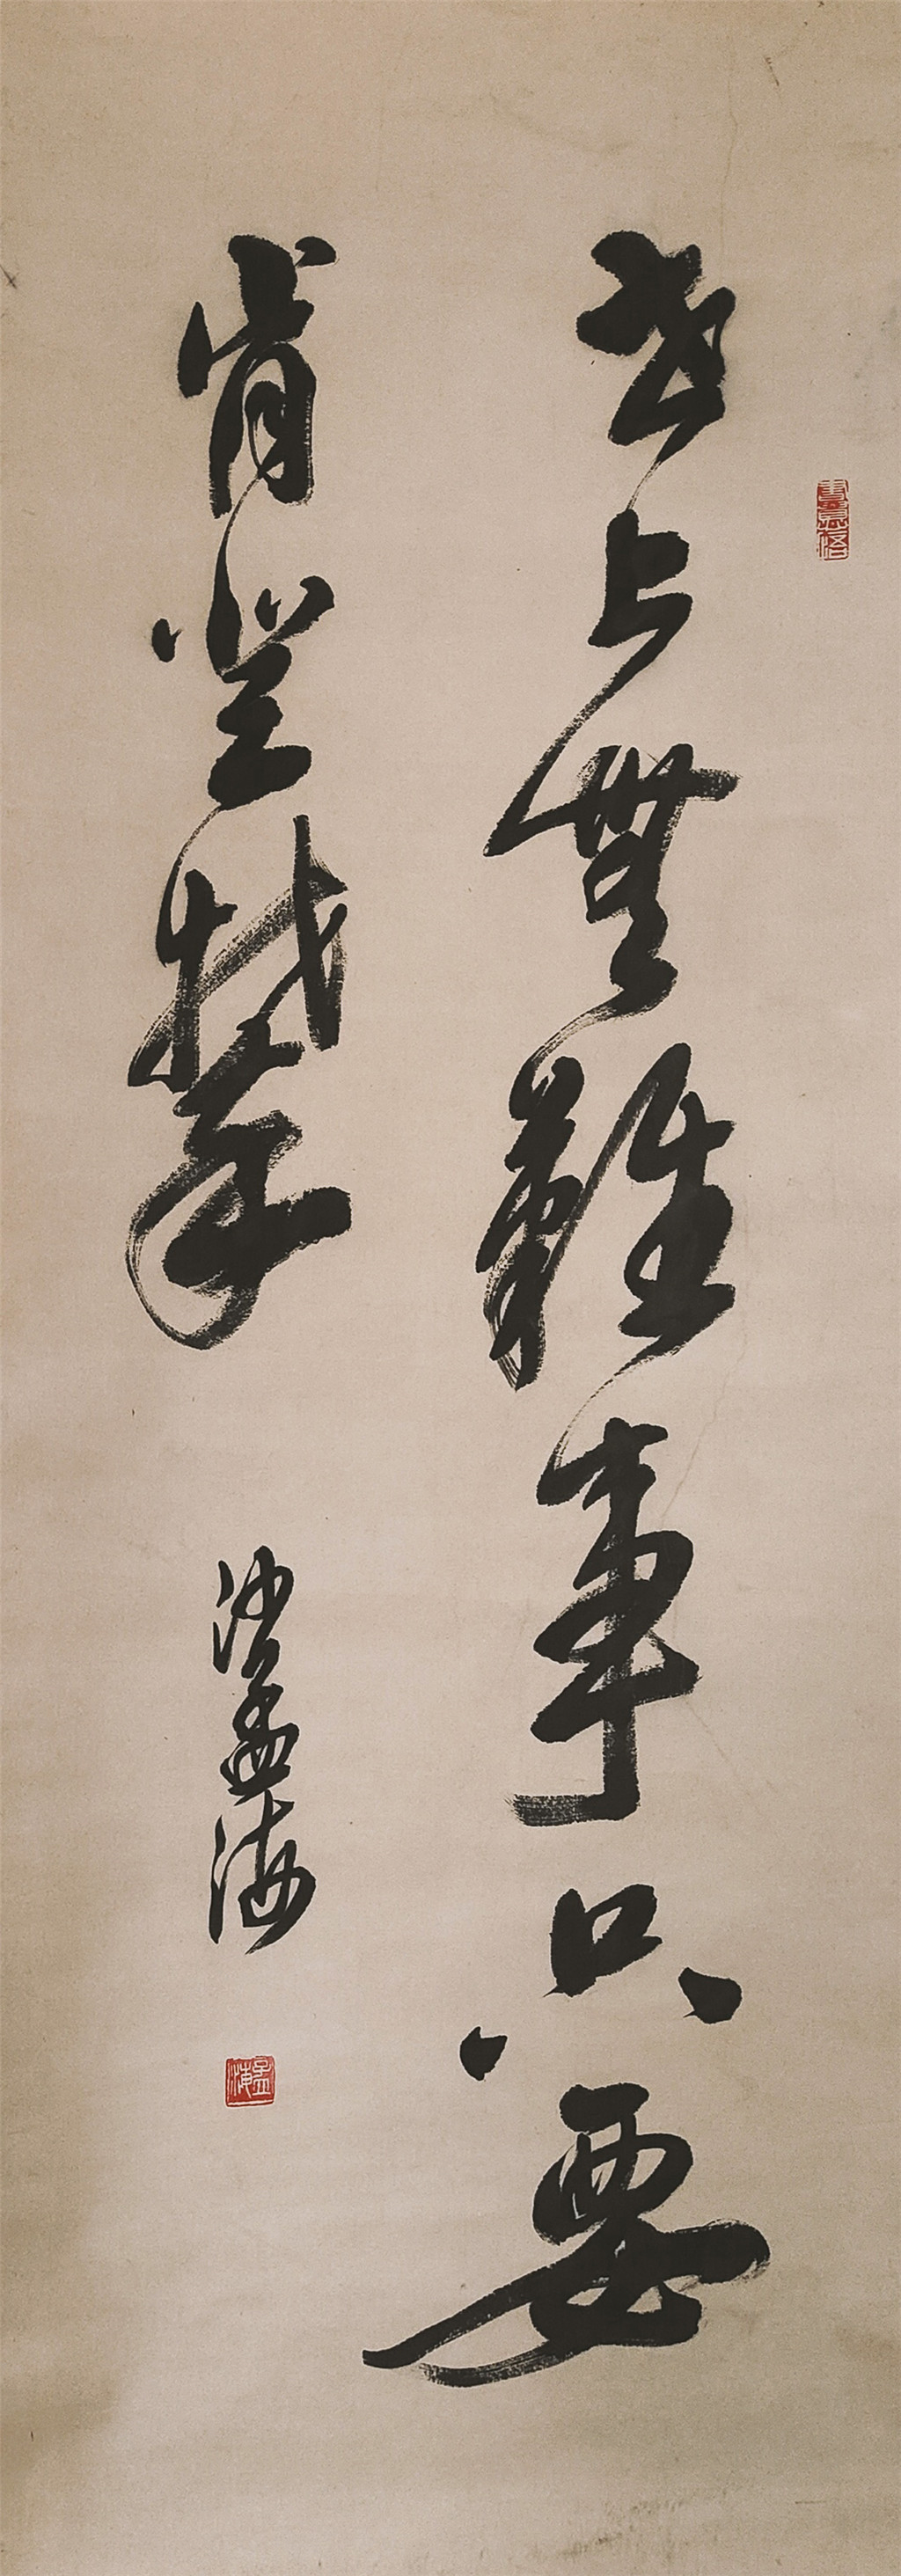 世上無難事只要
肯登攀
沙孟海
孟海